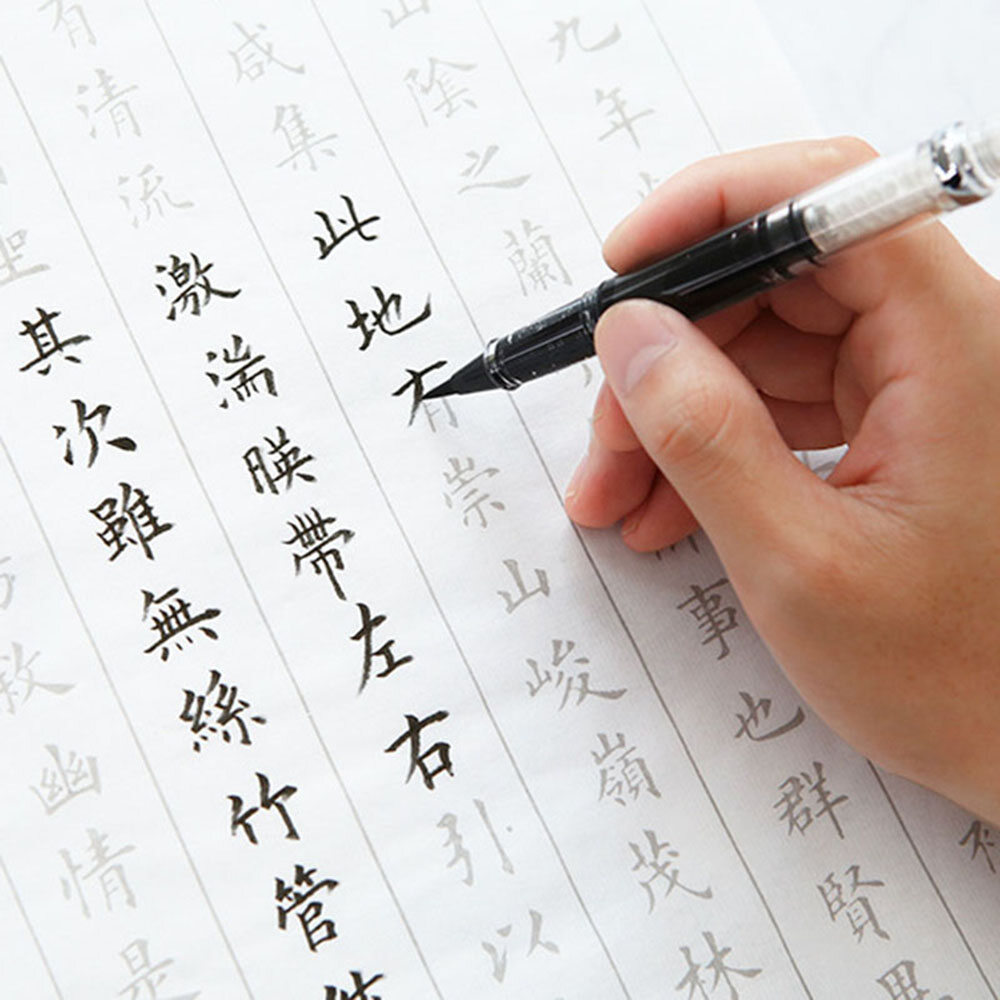 九年
山陰之蘭事也群賢
咸集此地有崇山峻嶺茂林
有清流激湍暎帶左右引以
坐其次雖無絲竹管
敘幽情是